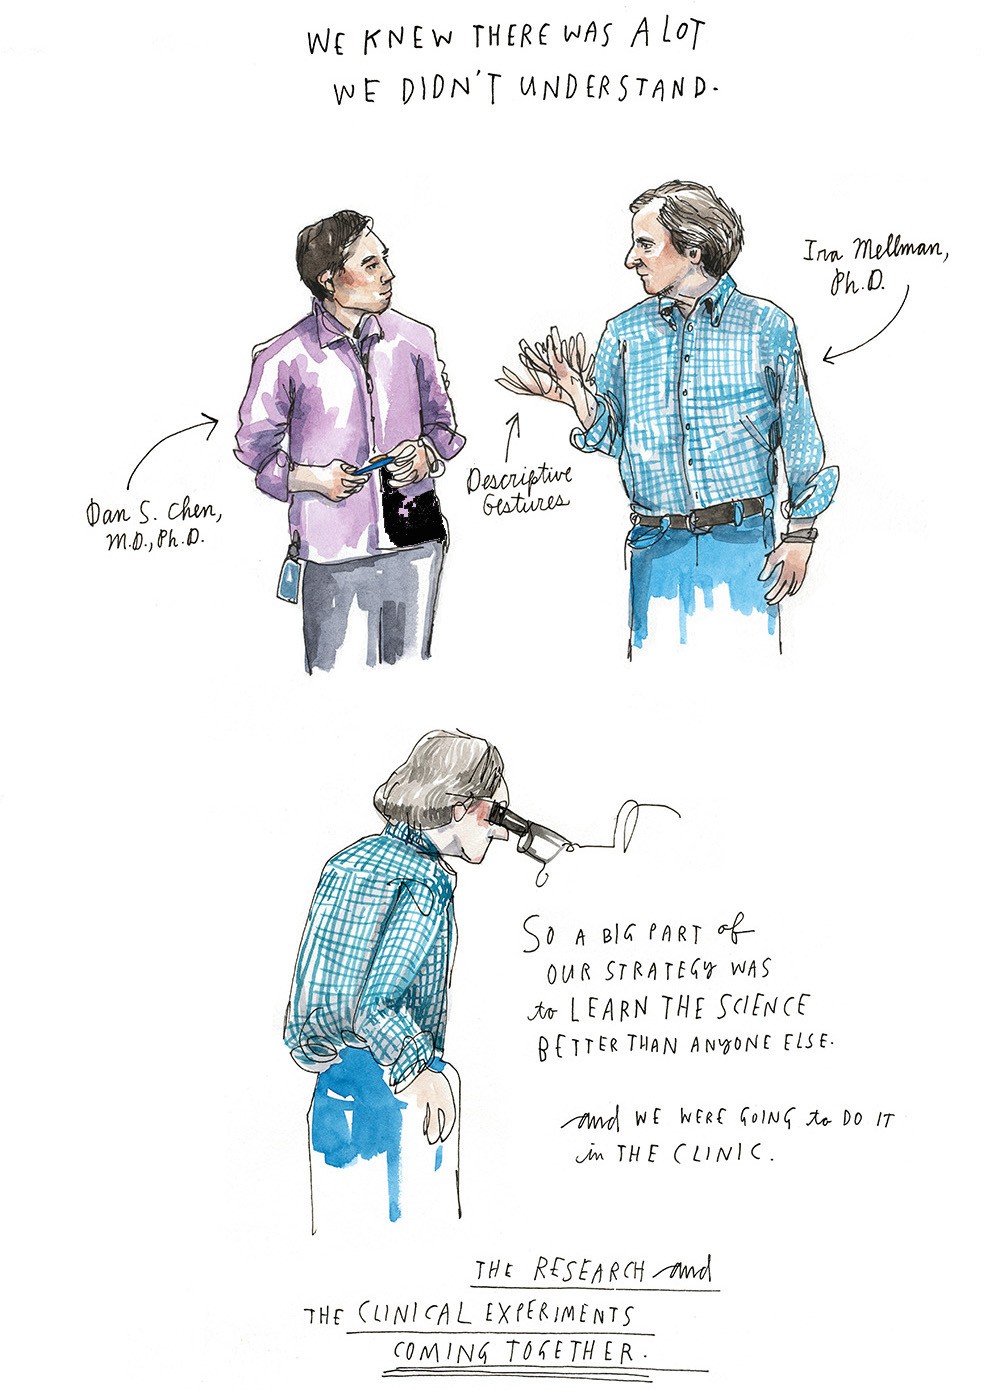 WE KNEW THERE WAS A LOT
WE DIDN'T UNDERSTAND.
Ira Mellman,
Ph.D.
Descriptive
Gestures
Dan S. Chen,
M.D., Ph.D.
SO A BIG PART of
OUR STRATEGY WAS
to LEARN THE SCIENCE
BETTER THAN ANYONE ELSE.
and WE WERE GOING to DO IT
in THE CLINIC.
THE RESEARCH and
THE CLINICAL EXPERIMENTS
COMING TOGETHER.